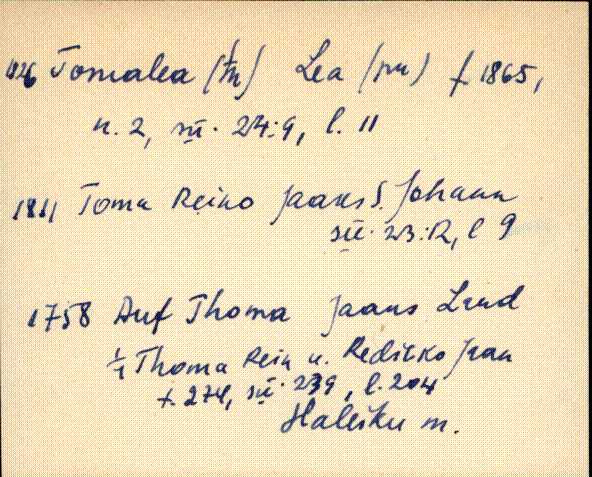 1826 Tomalea (tm) Lea (pm) f. 1865,
n. 2, sü. 24:9, l. 11
1811 Toma Reino Jaaks S. Johann
sü. 23:12, l 9
1758 Auf Thoma Jaans Land
1/1 Thoma Rein u. Redicko Jaan
f. 274, sü. 239, l. 204
Halliku m.